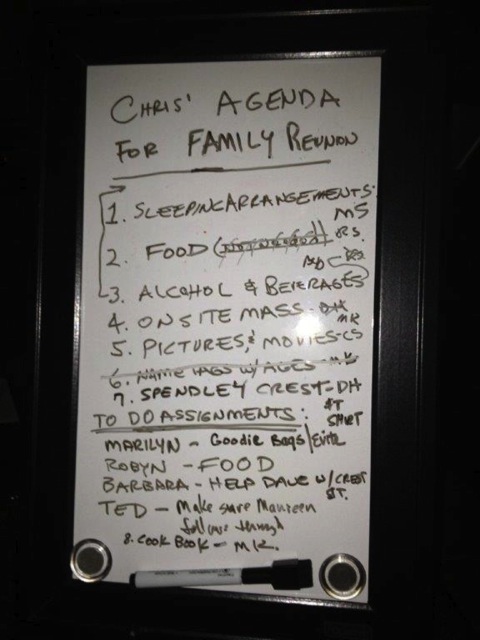 CHRIS' AGENDA
FOR FAMILY REUNION
1. SLEEPING ARRANGEMENTS.
MS
2. FOOD
RS.
3. ALCOHOL & BEVERAGES
4. ONSITE MASS - DH
MK
5. PICTURES, & MOVIES - CS
6. NAME TAGS W/ AGES - MK
7. SPENDLEY CREST - DH
TO DO ASSIGNMENTS:
$T SHIRT
MARILYN - Goodie Bags/Evite
ROBYN - FOOD
BARBARA - HELP DAVE W/ CREST
$T.
TED - Make sure Maureen
follows through
8. COOK BOOK - MK.